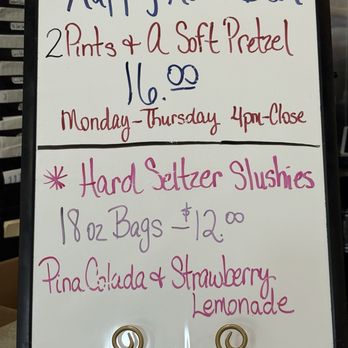 2 Pints & A Soft Pretzel
16.00
Monday-Thursday 4pm-Close
* Hard Seltzer Slushies
18oz Bags - $12.00
Pina Colada & Strawberry
Lemonade